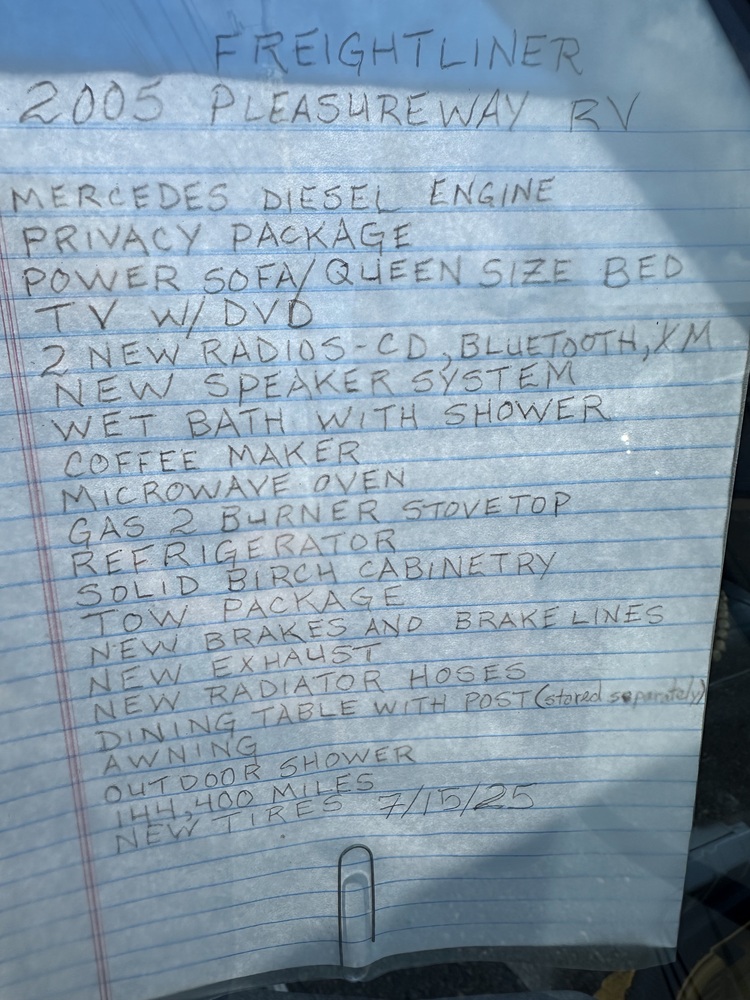 FREIGHTLINER
2005 PLEASUREWAY RV
MERCEDES DIESEL ENGINE
PRIVACY PACKAGE
POWER SOFA/QUEEN SIZE BED
TV W/DVD
2 NEW RADIOS-CD, BLUETOOTH, XM
NEW SPEAKER SYSTEM
WET BATH WITH SHOWER
COFFEE MAKER
MICROWAVE OVEN
GAS 2 BURNER STOVETOP
REFRIGERATOR
SOLID BIRCH CABINETRY
TOW PACKAGE
NEW BRAKES AND BRAKE LINES
NEW EXHAUST
NEW RADIATOR HOSES
DINING TABLE WITH POST (stored separately)
AWNING
OUTDOOR SHOWER
144,400 MILES
NEW TIRES 7/15/25